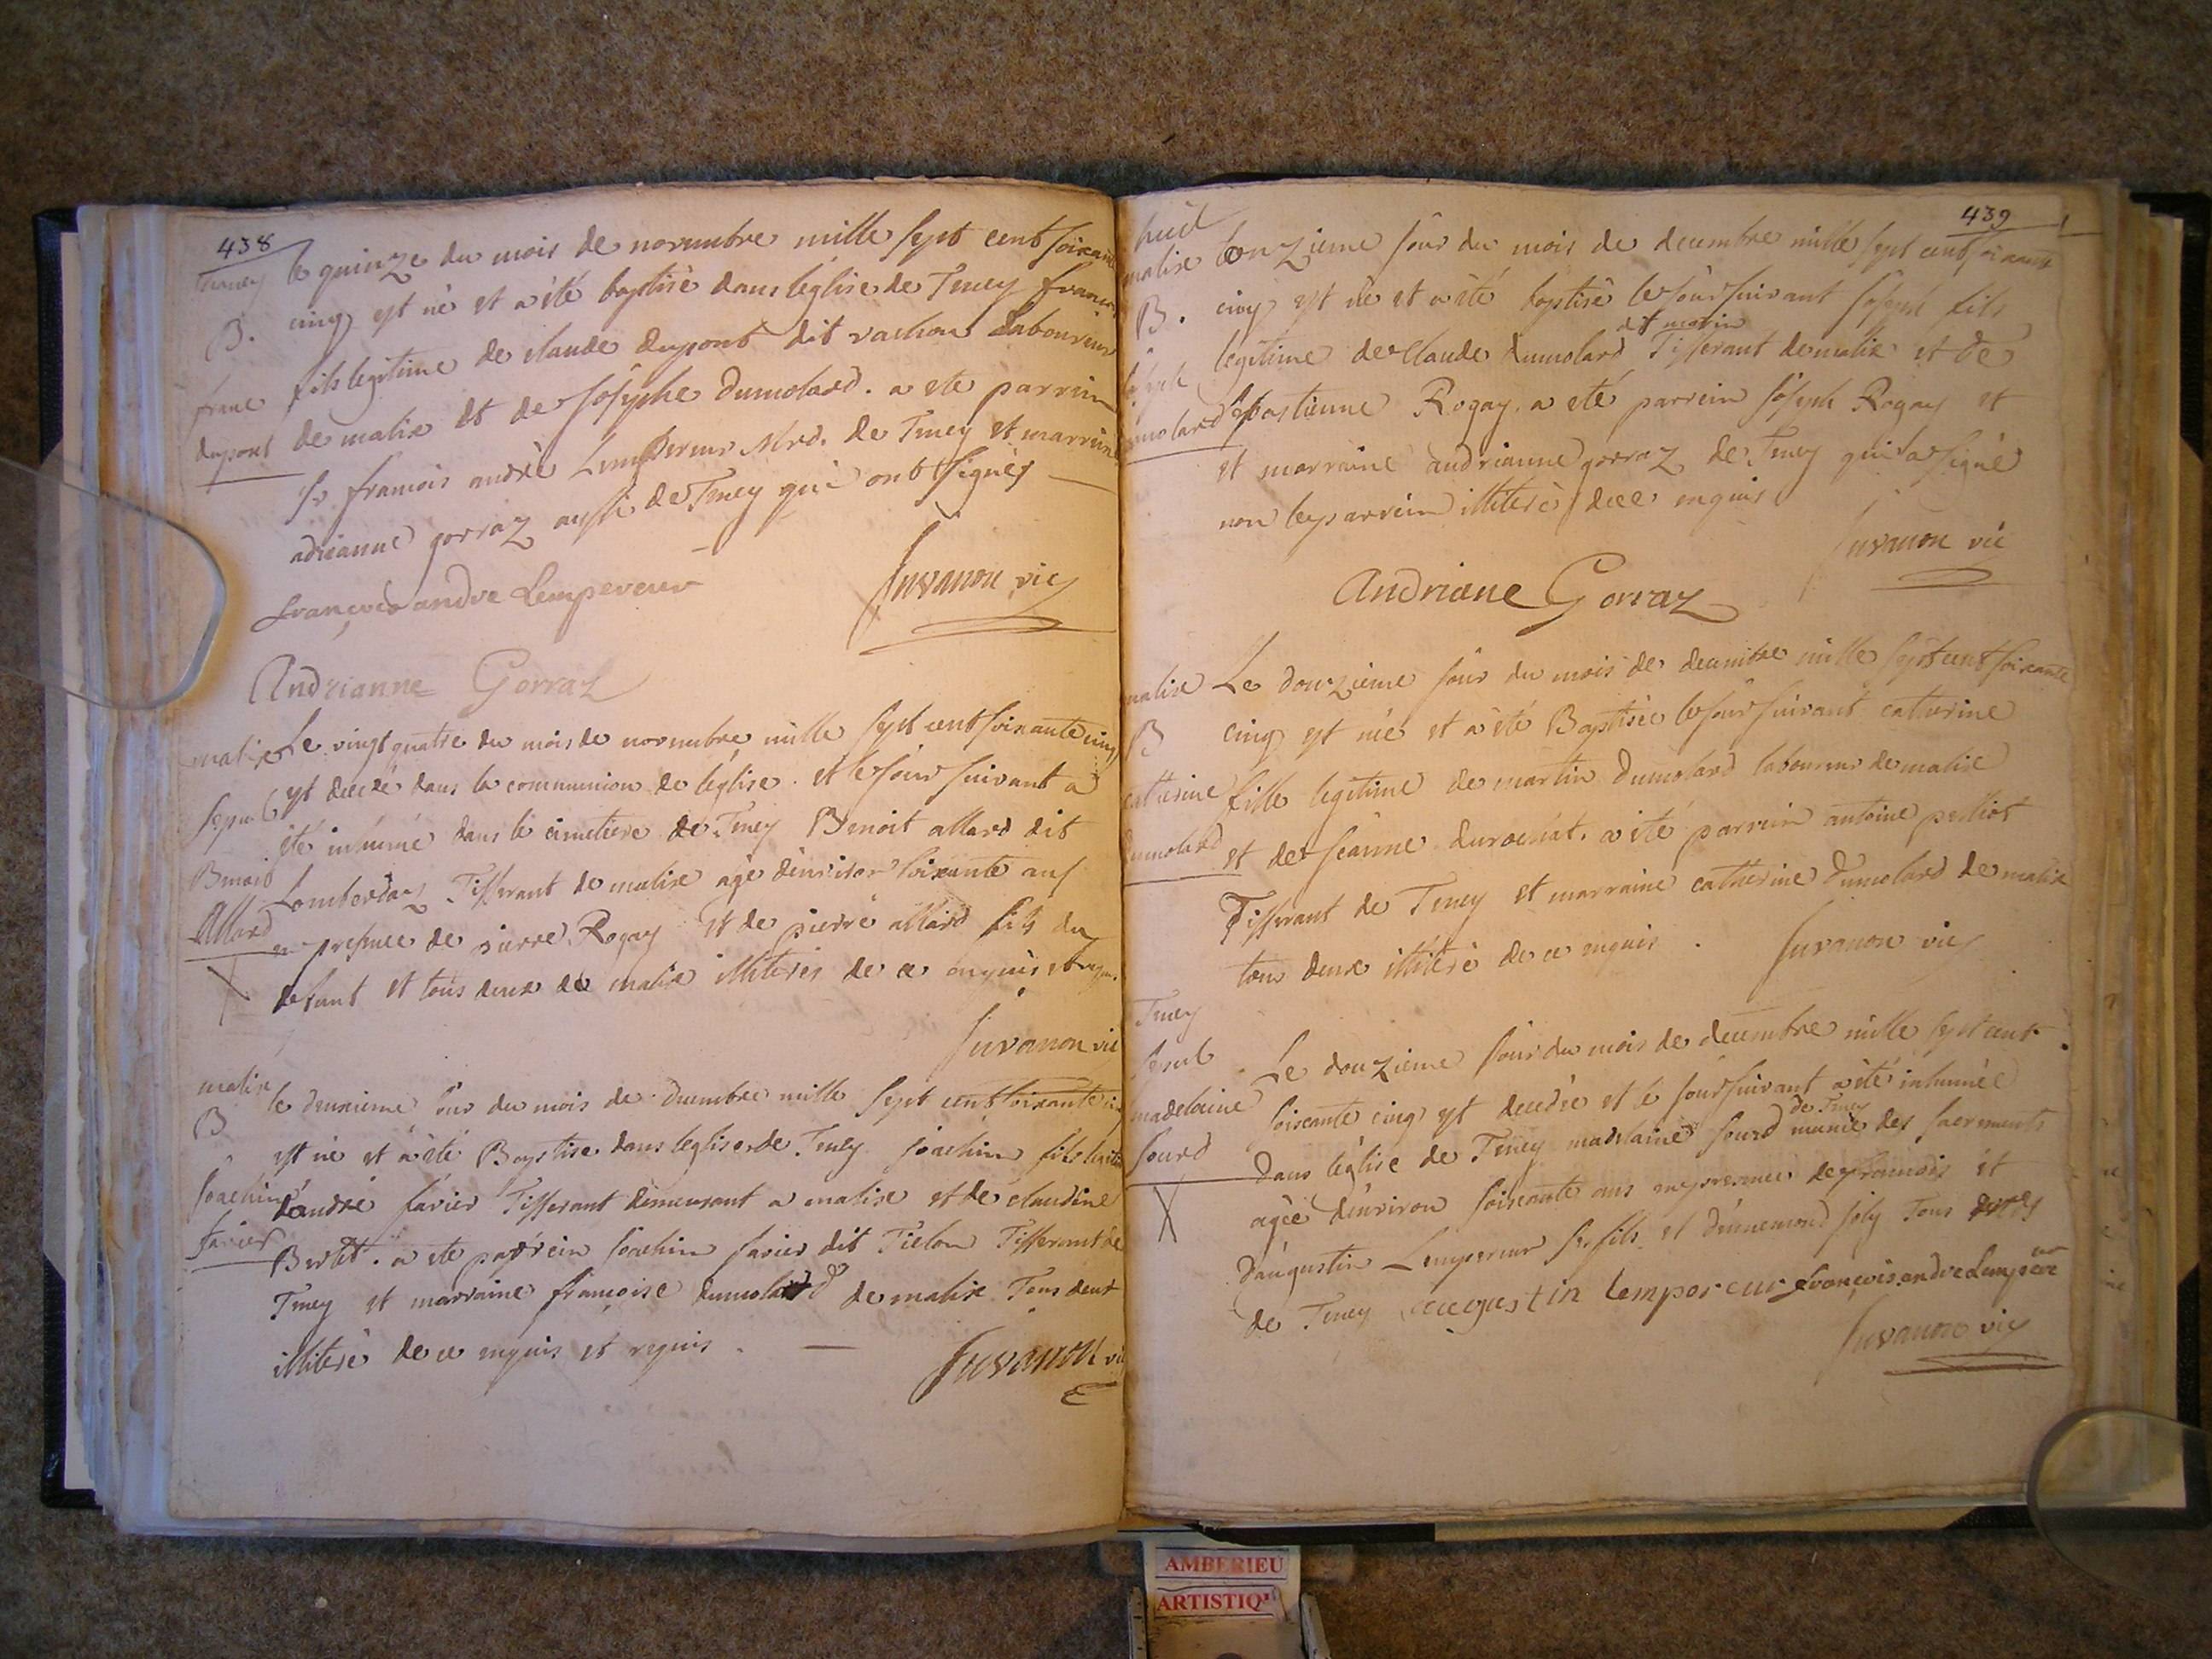 438
le quinze du mois de novembre mille sept cent soixante
B. cinq est né et a été baptisé dans l'église de Teney françois
franc fils legitime de claude dupont dit vachon Laboureur
dupont de malix et de josephe dumolard. a ete parrein
sr francois andrè Lempereur Mrd. de Teney et marreine
adrianne gorraz aussi de Teney qui ont signés
Juvanon vic
françois andre Lempereur
Andrianne Gorraz
malix Le vingt quatre du mois de novembre mille sept cent soixante cinq
sepul est decedé dans la communion de l'église. et le jour suivant a
été inhumé dans le cimetiere de Teney Benoit allard dit
Benoit Lombardaz Tisserant de malix agé d'environ soixante ans
Allard en presence de pierre Rogay et de pierre allard fils du
defunt et tous deux de malix illiterés de ce enquis et requis
Juvanon vic
malix
B le deuxieme jour du mois de decembre mille sept cent soixante cinq
est né et a été Baptisé dans leglise de Teney joachim fils legitime
joachim d'andré favier Tisserant demeurant a malix et de claudine
favier Bertet. a ete parrein joachim favier dit Tielon Tisserant de
Teney et marraine françoise dumolard de malix Tous deux
illiteré de ce enquis et requis.
Juvanon vic
439
malix Le onzieme jour du mois de decembre mille sept cent soixante
B. cinq est né et a été baptisé le jour suivant joseph fils
dit morin
joseph legitime de Claude dumolard Tisserant de malix et de
dumolard sebastienne Rogay. a eté parrein joseph Rogay et
et marraine andrianne gorraz de Teney qui a signé
non le parrein illiteré de ce enquis
Juvanon vic
Andriane Gorraz
malix Le douzieme jour du mois de decembre mille sept cent soixante
B cinq est née et a été Baptisée le jour suivant catherine
catherine fille legitime de martin dumolard laboureur de malix
dumolard et de jeanne durochat. a été parrein antoine pelliot
Tisserant de Teney et marraine catherine dumolard de malix
tous deux illiteré de ce enquis.
Juvanon vic
Teney
sepul Le douzieme jour du mois de decembre mille sept cent
madelaine soixante cinq est decedée et le jour suivant a été inhumée
de Teney
sourd dans l'église de Teney madelaine sourd munie des sacrements
agée d'environ soixante ans en presence de francois et
d'augustin Lempereur ses fils et d'ennemond joly Tous
de Teney augustin lempereur françois andre Lempereur
Juvanon vic
AMBERIEU
ARTISTIQ